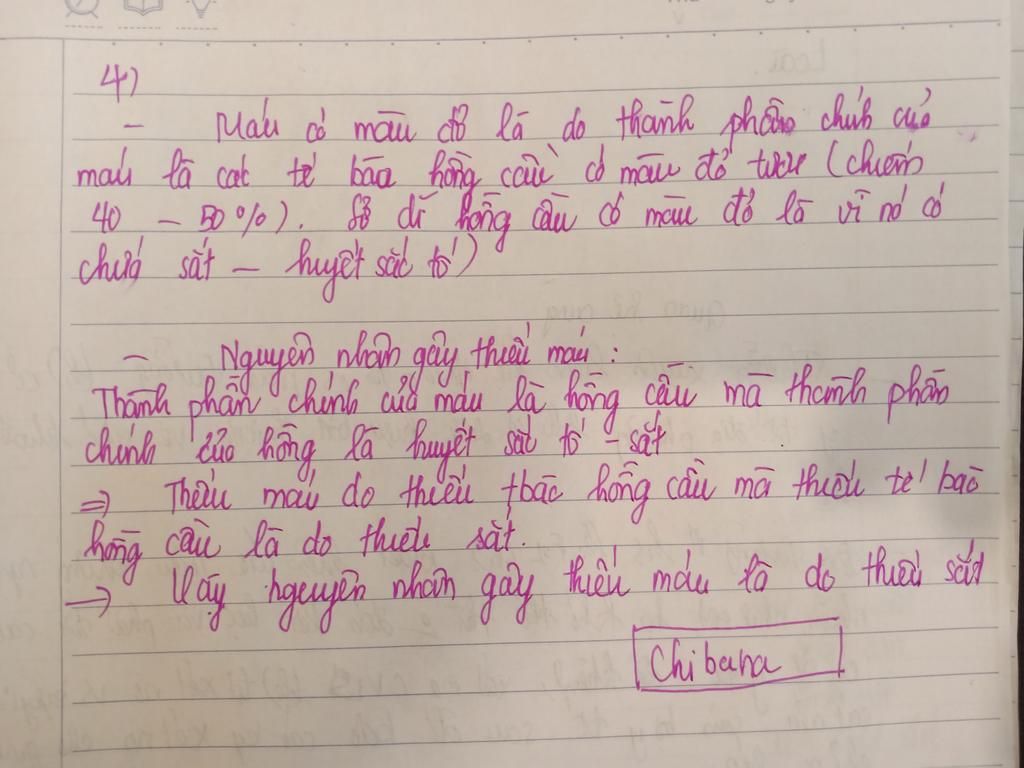 4)
- Máu có màu đỏ là do thành phần chính của
máu là các tế bào hồng cầu có màu đỏ tươi (chiếm
40 - 50%). Sở dĩ hồng cầu có màu đỏ là vì nó có
chứa sắt - huyết sắc tố)
- Nguyên nhân gây thiếu máu :
Thành phần chính của máu là hồng cầu mà thành phần
chính của hồng là huyết sắc tố - sắt
⇒ Thiếu máu do thiếu tbào hồng cầu mà thiếu tế bào
hồng cầu là do thiếu sắt.
→ Vậy nguyên nhân gây thiếu máu là do thiếu sắt
Chibana